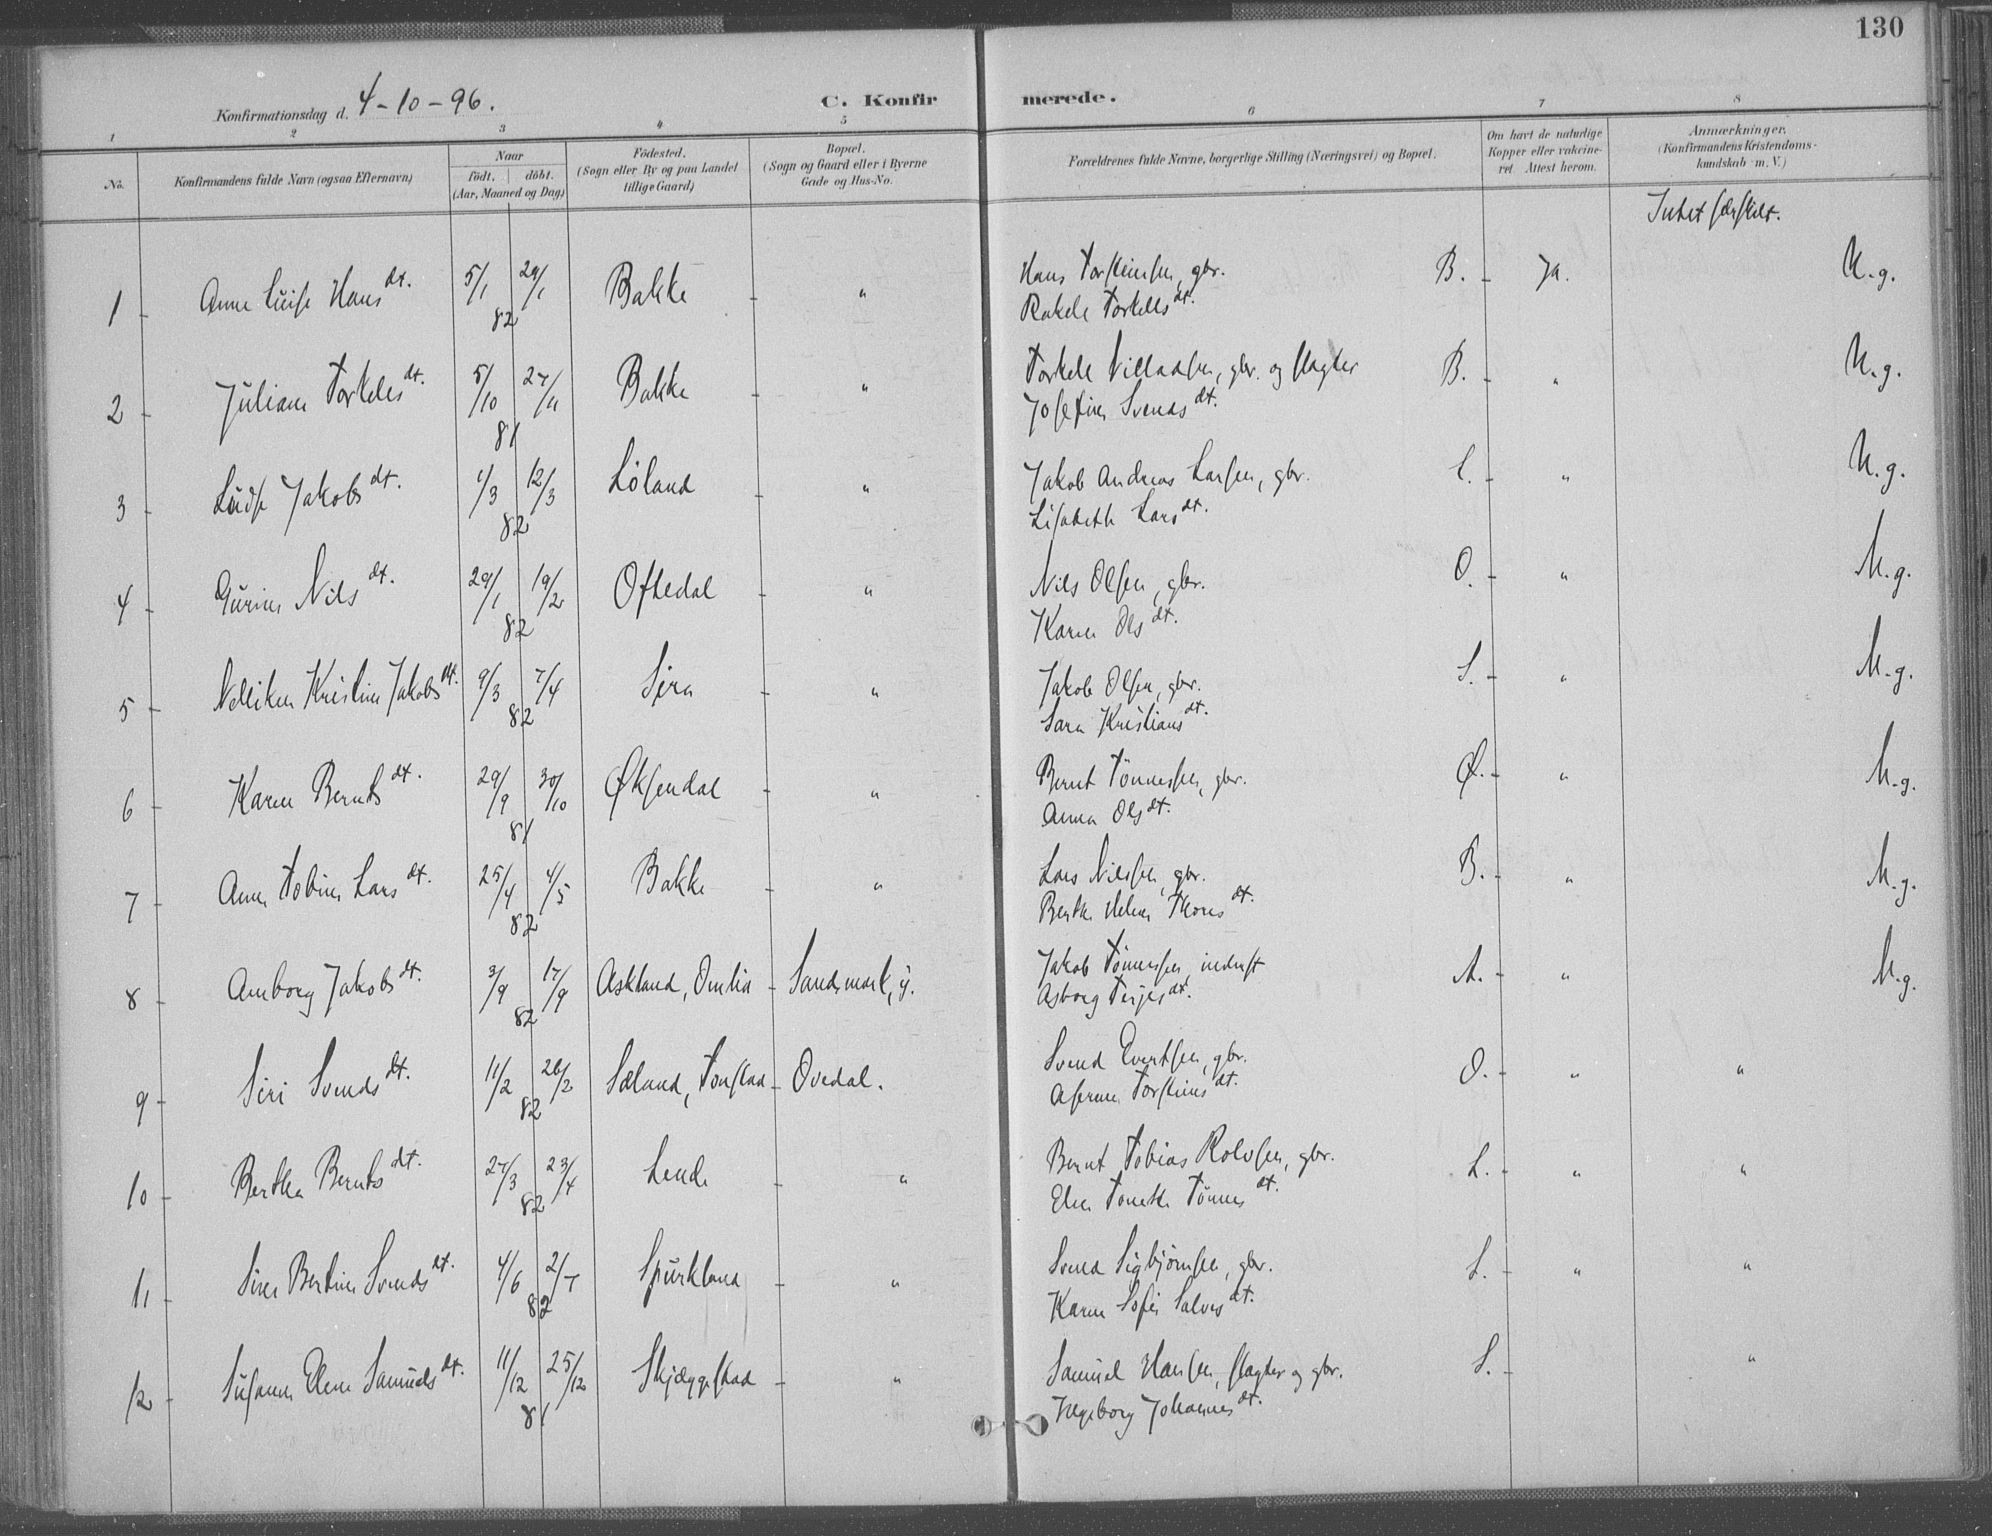 130
Konfirmationsdag d. 4-10-96.
C. Konfirmerede.
1 2 3 4 5 6 7 8
No.
Konfirmandens fulde Navn (ogsaa Efternavn)
Naar
födt. döbt.
(Aar, Maaned og Dag)
Födested.
(Sogn eller By og paa Landet
tillige Gaard)
Bopæl.
(Sogn og Gaard eller i Byerne
Gade og Hus-No.
Forældrenes fulde Navne, borgerlige Stilling (Næringsvei) og Bopæl.
Om havt de naturlige
Kopper eller vakcine-
ret Attest herom.
Anmærkninger.
(Konfirmandens Kristendoms-
kundskab m. V.)
Intet særskilt.
1 - Anne Luise Hans dt. 5/1 29/1 82 Bakke - " Hans Torsteinsen, gbr. B. - Ja. M.g.
Rakele Torkels dt.
2 - Juliane Torkels dt. 5/10 27/11 81 Bakke - " Torkele Villadsen, gbr. og slagter B. - " M.g.
Josefine Svends dt.
3 - Ludse Jakobs dt. 1/3 12/3 82 Löland - " Jakob Andreas Larsen, gbr. L. - " M.g.
Lisabeth Lars dt.
4 - Gurine Nils dt. 29/1 19/2 82 Oftedal - " Nils Olsen, gbr. O. - " M.g.
Karen Ols dt.
5 - Nelliken Kristine Jakobs dt. 9/3 7/4 82 Sira - " Jakob Olsen, gbr. S. - " M.g.
Sara Kristians dt.
6 - Karen Bernts dt. 29/9 30/10 81 Øksendal - " Bernt Tönnessen, gbr. Ø. - " M.g.
Anna Ols dt.
7 - Anne Tobine Lars dt. 25/4 4/5 82 Bakke - " Lars Nilssen, gbr. B. - " M.g.
Berthe Helene Thores dt.
8 - Amborg Jakobs dt. 3/9 17/9 82 Askland, Omlid - Sandsmark, y. Jakob Tönnessen, inderst A. - " M.g.
Asborg Terjes dt.
9 - Siri Svends dt. 11/2 26/2 82 Sæland, Tonstad - Ovedal. Svend Evertsen, gbr. O. - " "
Aserine Torsteins dt.
10 - Bertha Bernts dt. 27/3 23/4 82 Lende - " Bernt Tobias Rolvsen, gbr. L. - " "
Elen Tonette Tönnes dt.
11 - Sine Bertine Svends dt. 4/6 2/7 82 Spurkland - " Svend Sigbjörnsen, gbr. S. - " "
Karen Sofie Salves dt.
12 - Susanne Elene Samuels dt. 11/12 25/12 81 Skjæggestad - " Samuel Hansen, slagter og gbr. S. - "
Ingeborg Johannes dt.